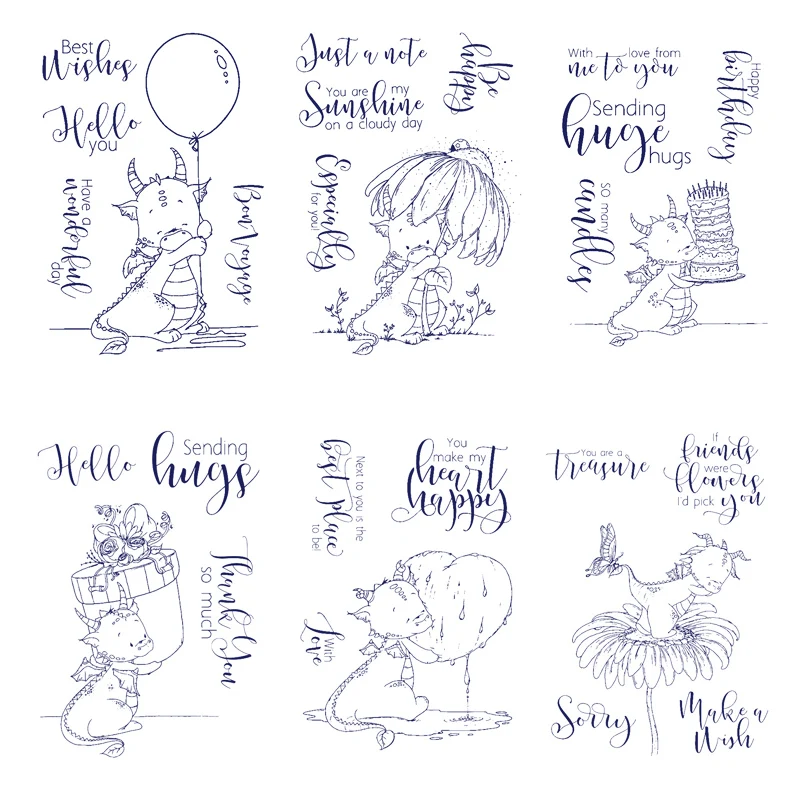 Best
Wishes
Hello
you
Have a
wonderful
day
Bon Voyage
Just a note
You are my
Sunshine
on a cloudy day
Be
happy
Especially
for you!
With love from
me to you
Sending
huge
hugs
Happy
birthday
so many
candles
Hello
Sending
hugs
Thank You
so much
Next to you is the
best place
to be!
You
make my
heart
happy
With
Love
You are a
treasure
If
friends
were
flowers
I'd pick you
Sorry
Make a
Wish